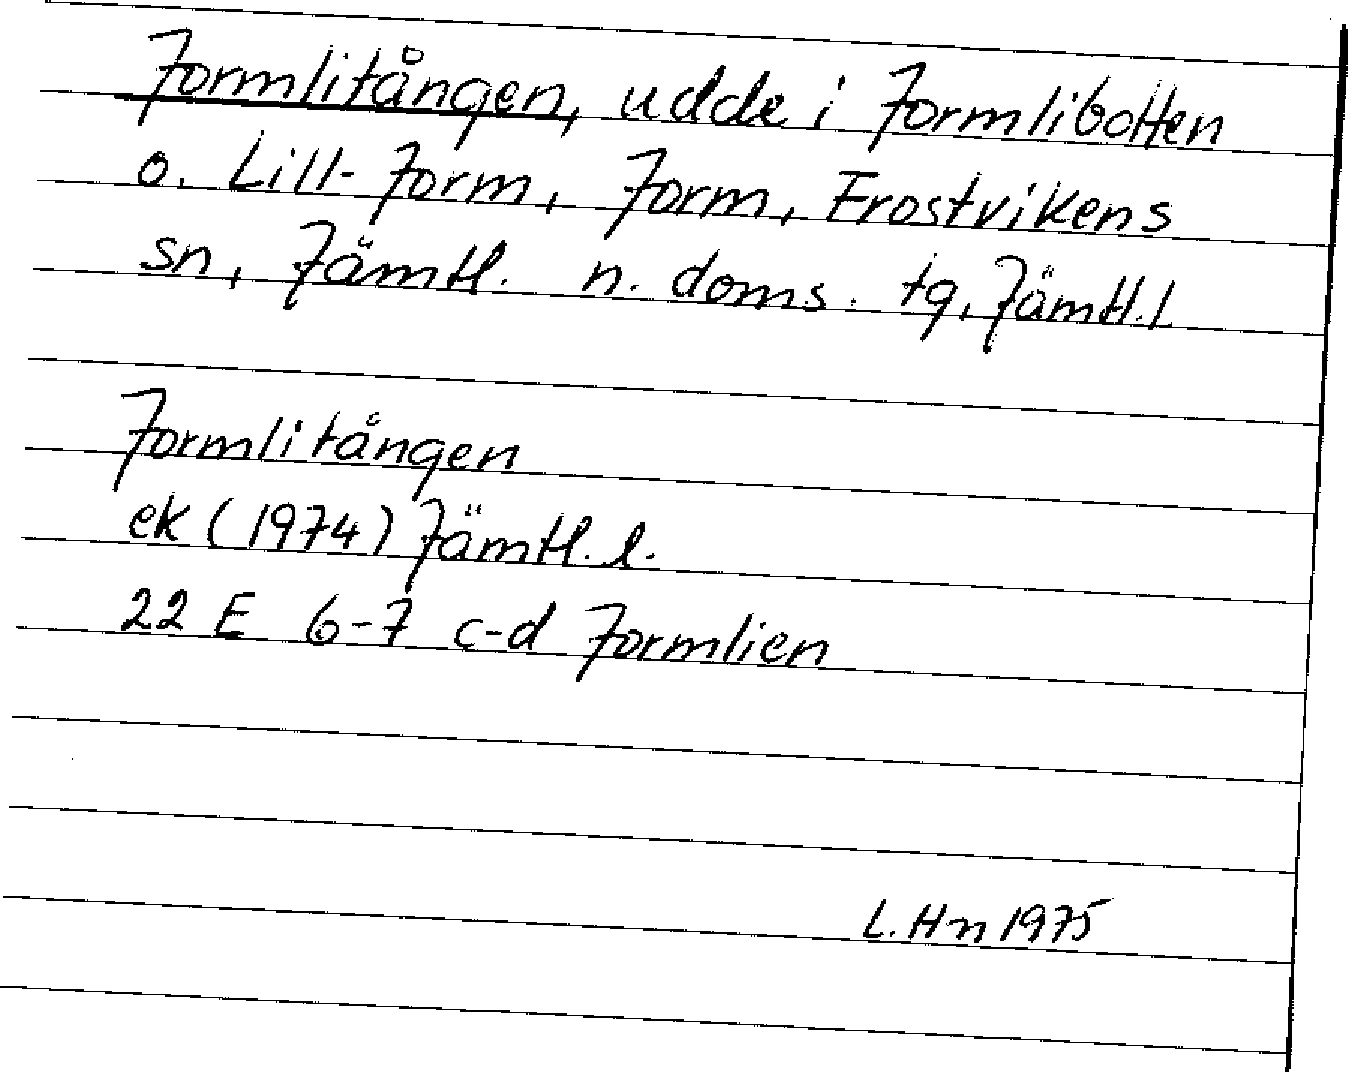 Jormlitången, udde i Jormlibotten
o. Lill-Jorm, Jorm, Frostvikens
sn, Jämtl. n. doms. tg, Jämtl. l.
Jormlitången
ek (1974) Jämtl. l.
22 E 6-7 c-d Jormlien
L. Hn 1975